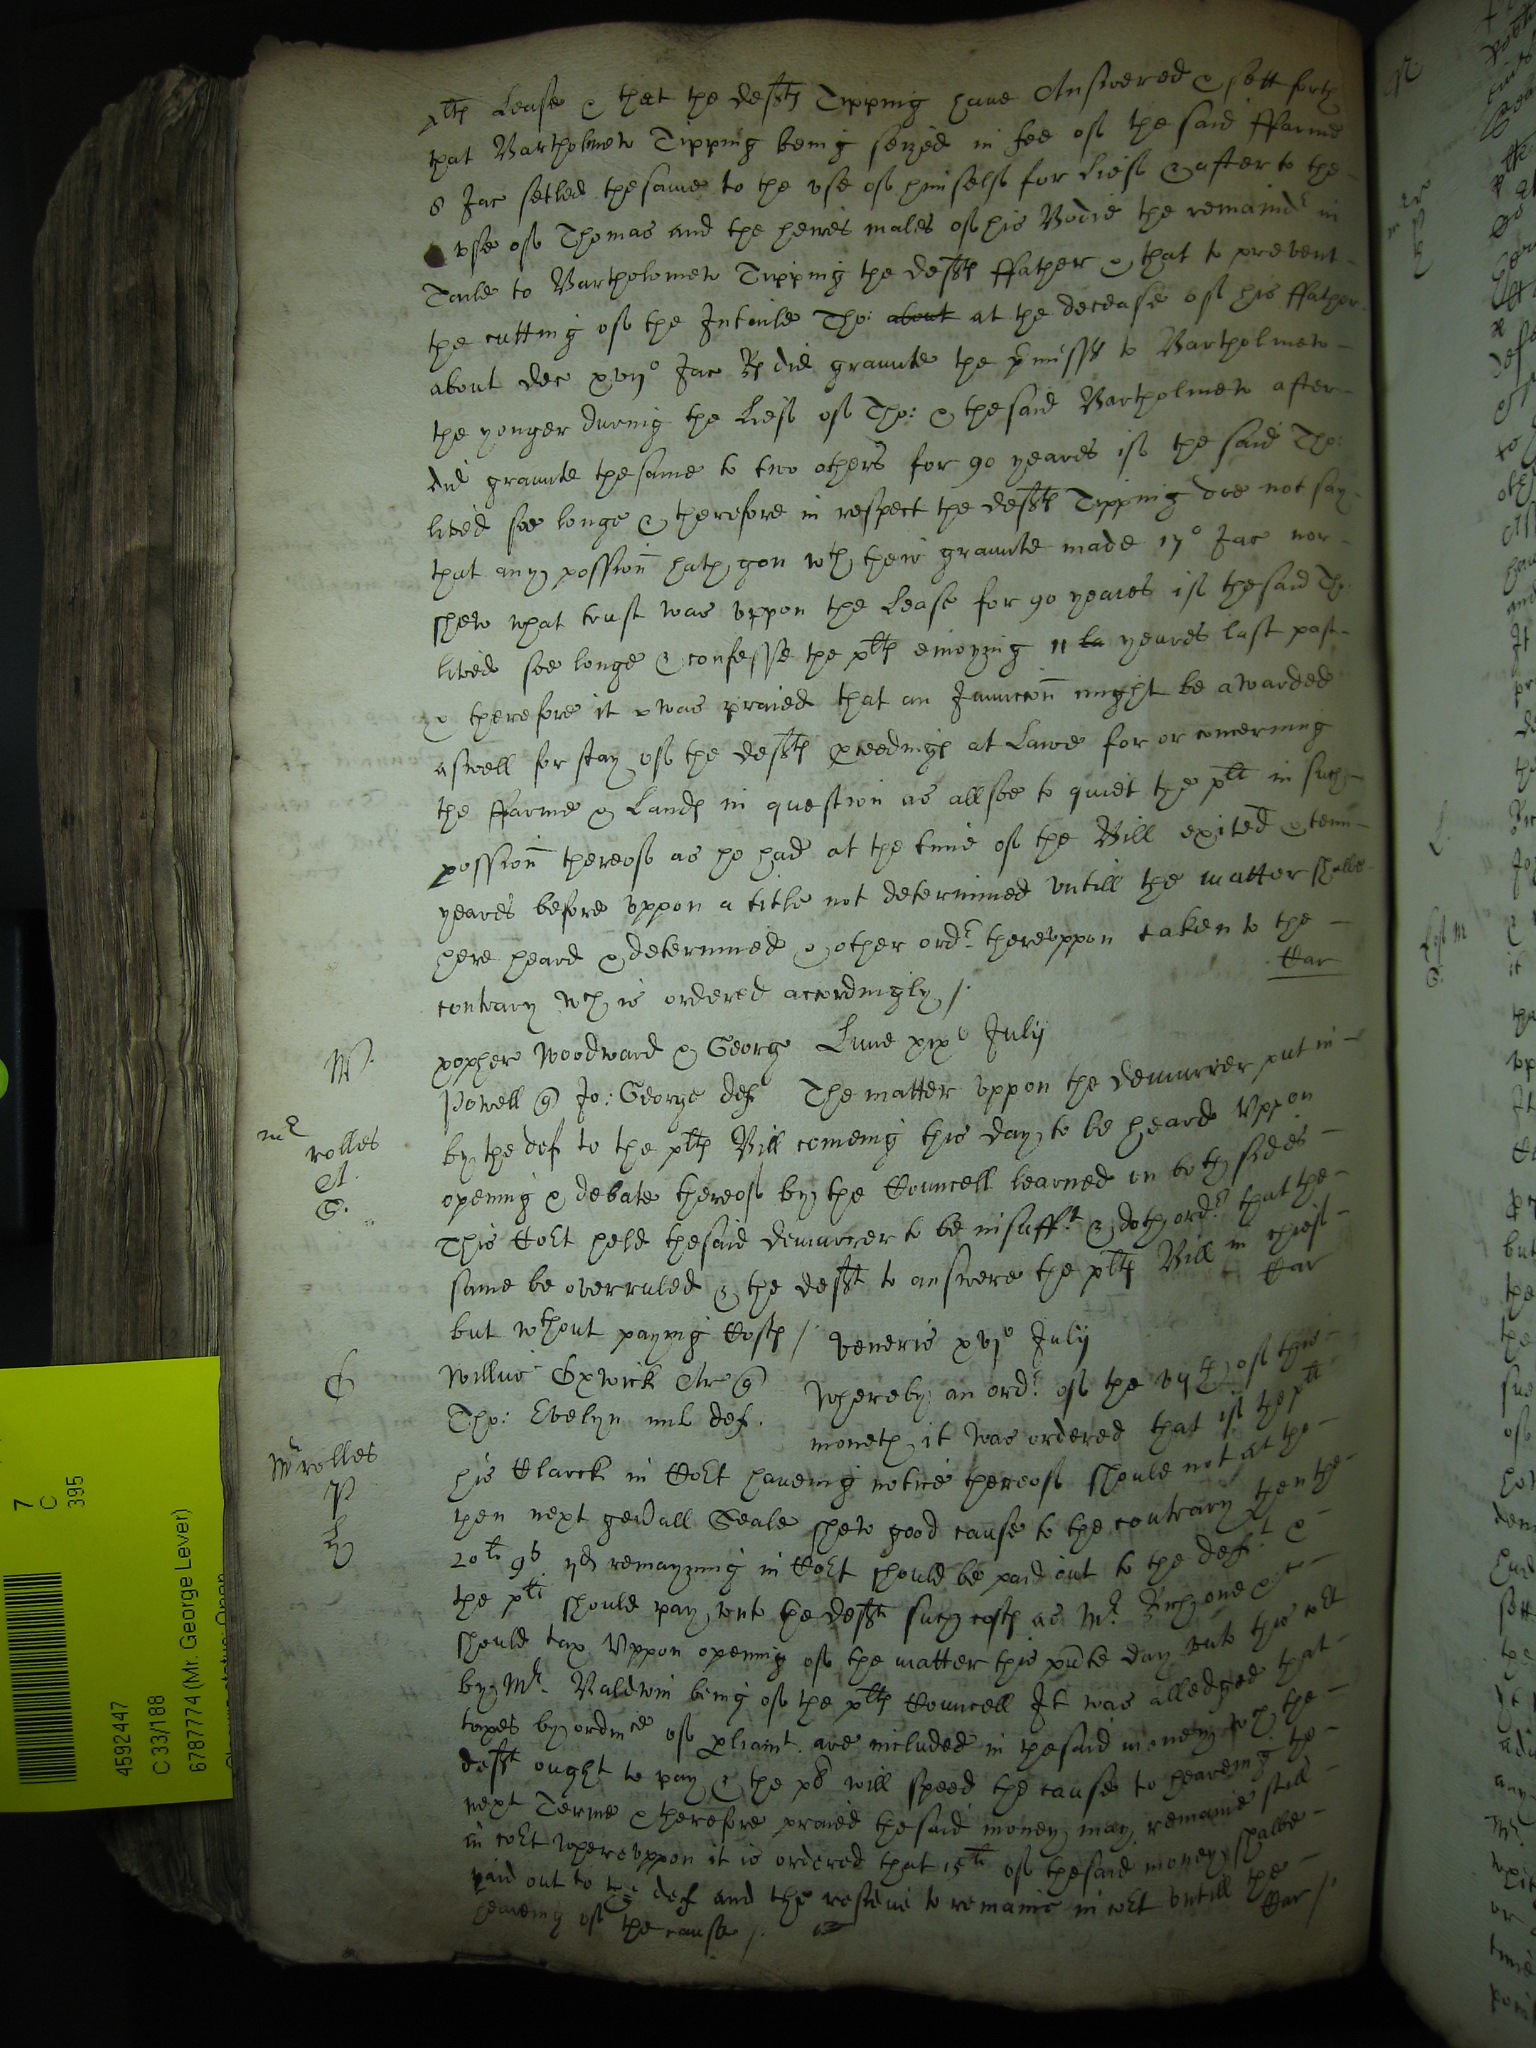 plts Lease & that the defts Tipping have Answered & sett forth
that Bartholmew Tipping being seized in fee of the said ffarme
8 Jac setled the same to the use of himselfe for Liefe & after to the
use of Thomas and the heires males of his Bodie the remaindr in
Taile to Bartholomew Tipping the defts ffather & that to prevent
the cutting of the Intaile Tho: about at the decease of his ffather
about dec xvijo Jac Rs did graunte the pmisses to Bartholmew
the yonger during the Liefe of Tho: & the said Bartholmew after
did graunte the same to two others for 90 yeares if the said Tho:
lived soe longe & therefore in respect the defts Tipping doe not say
that any possion hath gon wth their graunte made 17o Jac nor
shew what trust was uppon the Lease for 90 yeares if the said Tho
lived soe longe & confesse the plts enioying 11 la yeares last past
& therefore it was praied that an Iniunccon might be awarded
aswell for stay of the defts pceedings at Lawe for or concerning
the ffarme & Lands in question as allsoe to quiet the plt in such
possion thereof as he had at the time of the Bill exited & tenn
yeares before uppon a title not determined untill the matter shalbe
here heard & determined & other ordr thereuppon taken to the
contrary wch is ordered accordingly /.
Car
W.
xpopher Woodward & George
Powell @ Jo: George def
Lune xixo Julij
mr
rolles
A.
G.
The matter uppon the demurrer put in
by the def to the plts Bill comeing this day to be heard Uppon
opening & debate thereof by the Councell learned on both sides
This Cort held the said demurrer to be insufft & doth ordr that the
same be overruled & the deft to answere the plts Bill in chief
but wthout paying Costs /
Car
Veneris xvjo Julij
E
Willus Exwick Ar @
Tho: Evelyn mil def.
Mr rolles
P
H
Whereby an ordr of the vijth of this
moneth it was ordered that if the plt
his Clarck in Cort haveing notice thereof should not at the
then next genall Seale shew good cause to the contrary then the
20li 9s yd remayning in Cort should be paid out to the deft &
the plt should pay unto the deft such costs as Mr Rich one &c
should tax Uppon opening of the matter this pnte day unto this cort
by Mr Baldwin being of the plts Councell It was alledged that
taxes by ordince of pliamt are included in the said money wch the
deft ought to pay & the plt will speed the cause to heareing the
next Terme & therefore praied the said money may remaine still
in cort whereuppon it is ordered that 15li of the said money shalbe
paid out to the def and the residue to remaine in cort untill the
heareing of the cause /.
Car /.
7
C
395
4592447
C 33/188
67877774 (Mr. George Lever)